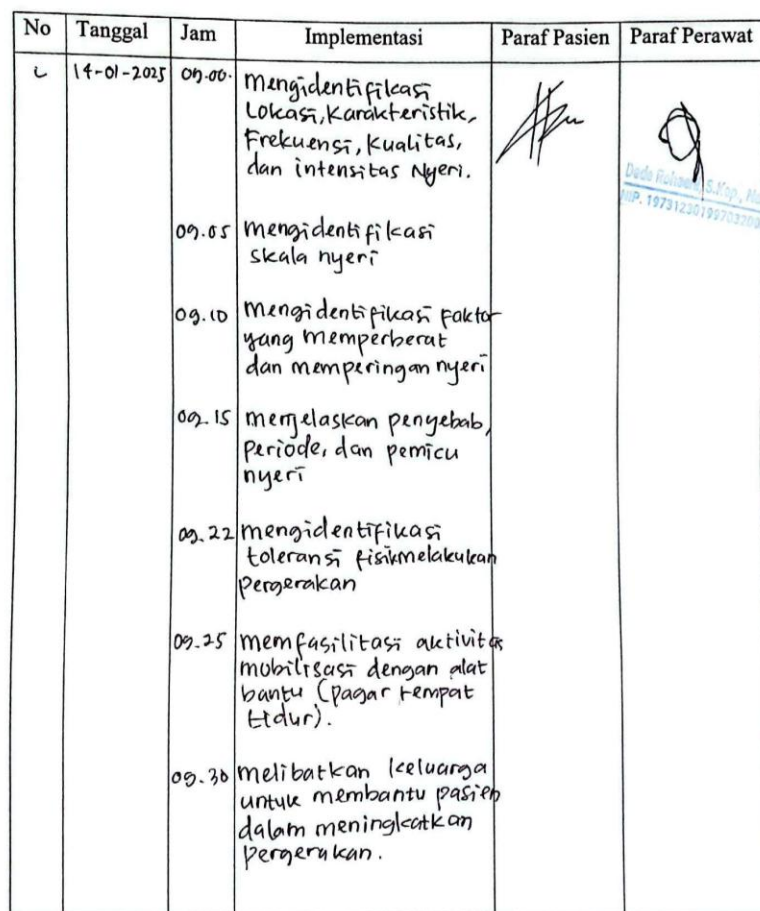 No Tanggal Jam Implementasi Paraf Pasien Paraf Perawat
14-01-2025 09.00. Mengidentifikasi
Lokasi, Karakteristik,
Frekuensi, Kualitas,
dan intensitas Nyeri.
S.Kep., 
NIP.
09.05 Mengidentifikasi
skala nyeri
09.10 Mengidentifikasi faktor
yang memperberat
dan memperingan nyeri
09.15 Menjelaskan penyebab,
Periode, dan pemicu
nyeri
09.22 mengidentifikasi
toleransi fisik melakukan
pergerakan
09.25 memfasilitasi aktivitas
mobilisasi dengan alat
bantu (pagar tempat
tidur).
09.30 melibatkan keluarga
untuk membantu pasien
dalam meningkatkan
pergerakan.